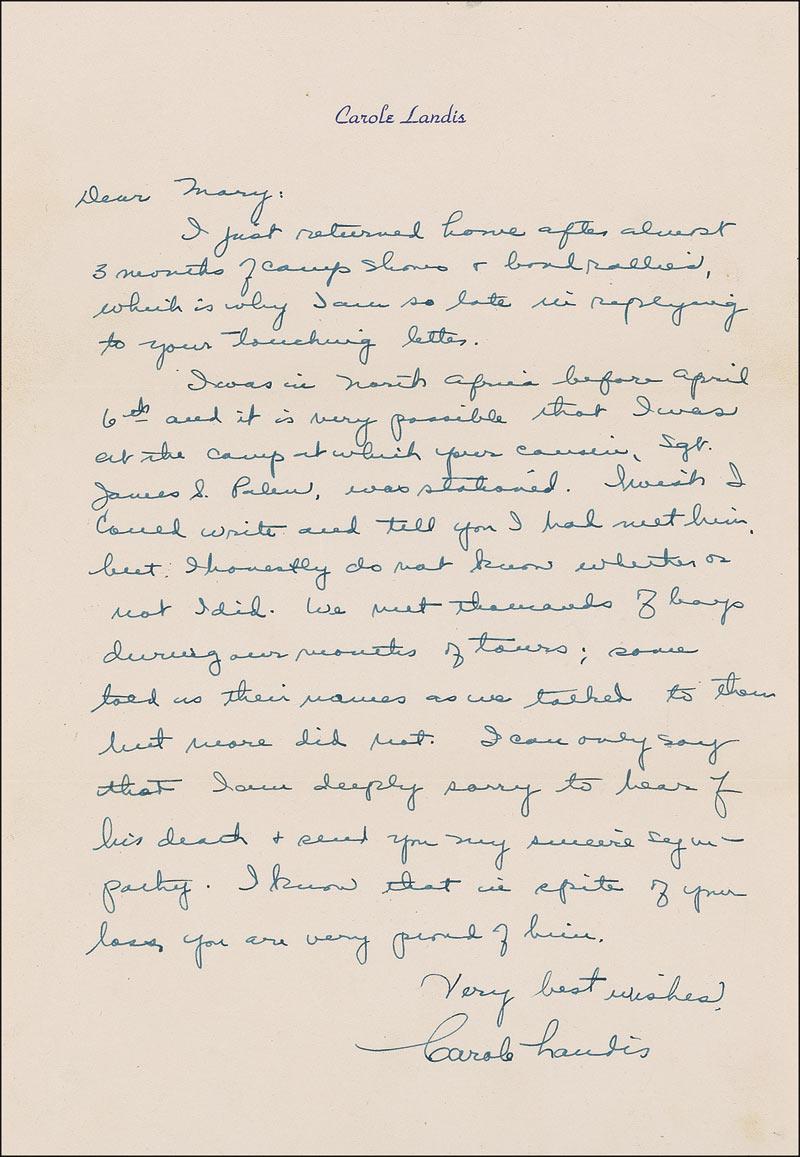 Carole Landis
Dear Mary:
I just returned home after almost
3 months of camp shows + bond rallies,
which is why I am so late in replying
to your touching letter.
I was in North Africa before April
6th and it is very possible that I was
at the camp at which your cousin, Sgt.
James S. Palen, was stationed. I wish I
could write and tell you I had met him,
but I honestly do not know whether or
not I did. We met thousands of boys
during our months of tours; some
told us their names as we talked to them
but more did not. I can only say
that I am deeply sorry to hear of
his death + send you my sincere sym-
pathy. I know that in spite of your
loss, you are very proud of him.
Very best wishes,
Carole Landis